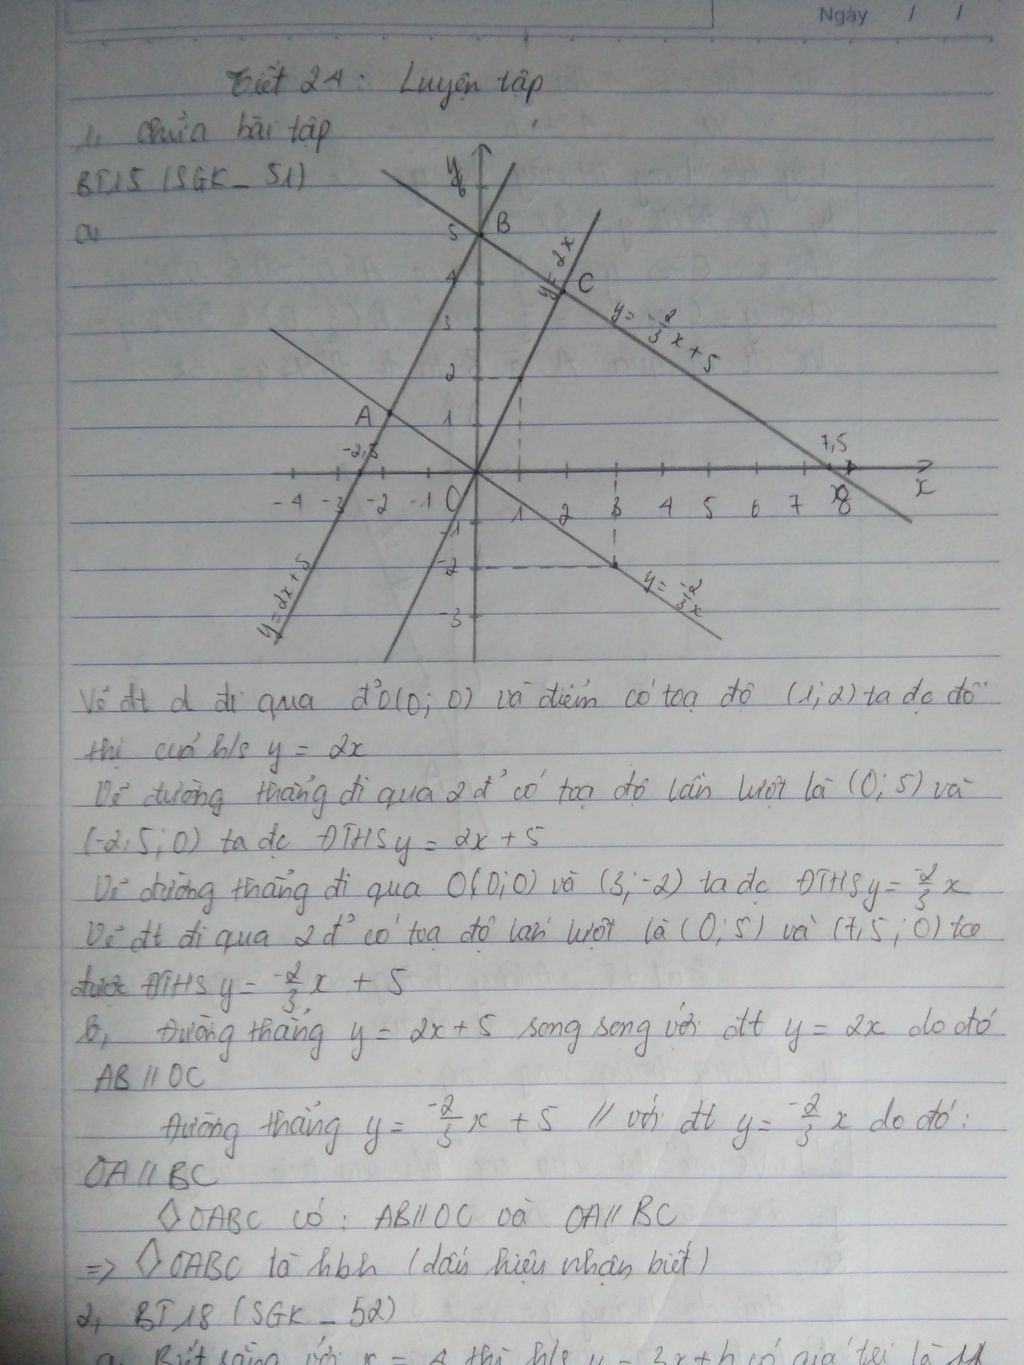 Ngày / /
Tiết 24: Luyện tập
1, Chữa bài tập
BT15 (SGK_51)
a,
y
6
5 B
4
3
2
1
y = 2x
C
y = -2/3 x + 5
A
-2,5
7,5
-4 -3 -2 -1 O 1 2 3 4 5 6 7 8 x
-1
-2
-3
y = 2x+5
y = -2/3 x
Vẽ đt d đi qua đ' O(0; 0) và điểm có toạ độ (1; 2) ta đc đồ
thị cuả h/s y = 2x
Vẽ đường thẳng đi qua 2 đ' có toạ độ lần lượt là (0; 5) và
(-2,5; 0) ta đc ĐTHS y = 2x + 5
Vẽ đường thẳng đi qua O(0;0) và (3; -2) ta đc ĐTHS y = -2/3 x
Vẽ đt đi qua 2 đ' có toạ độ lần lượt là (0; 5) và (7,5; 0) ta
được ĐTHS y = -2/3 x + 5
b, Đường thẳng y = 2x + 5 song song với đt y = 2x do đó
AB // OC
Đường thẳng y = -2/3 x + 5 // với đt y = -2/3 x do đó:
OA // BC
◇ OABC có: AB // OC và OA // BC
=> ◇ OABC là hbh (dấu hiệu nhận biết)
2, BT18 (SGK_52)
a, Biết rằng với x = 4 thì h/s y = 3x + b có giá trị là 11